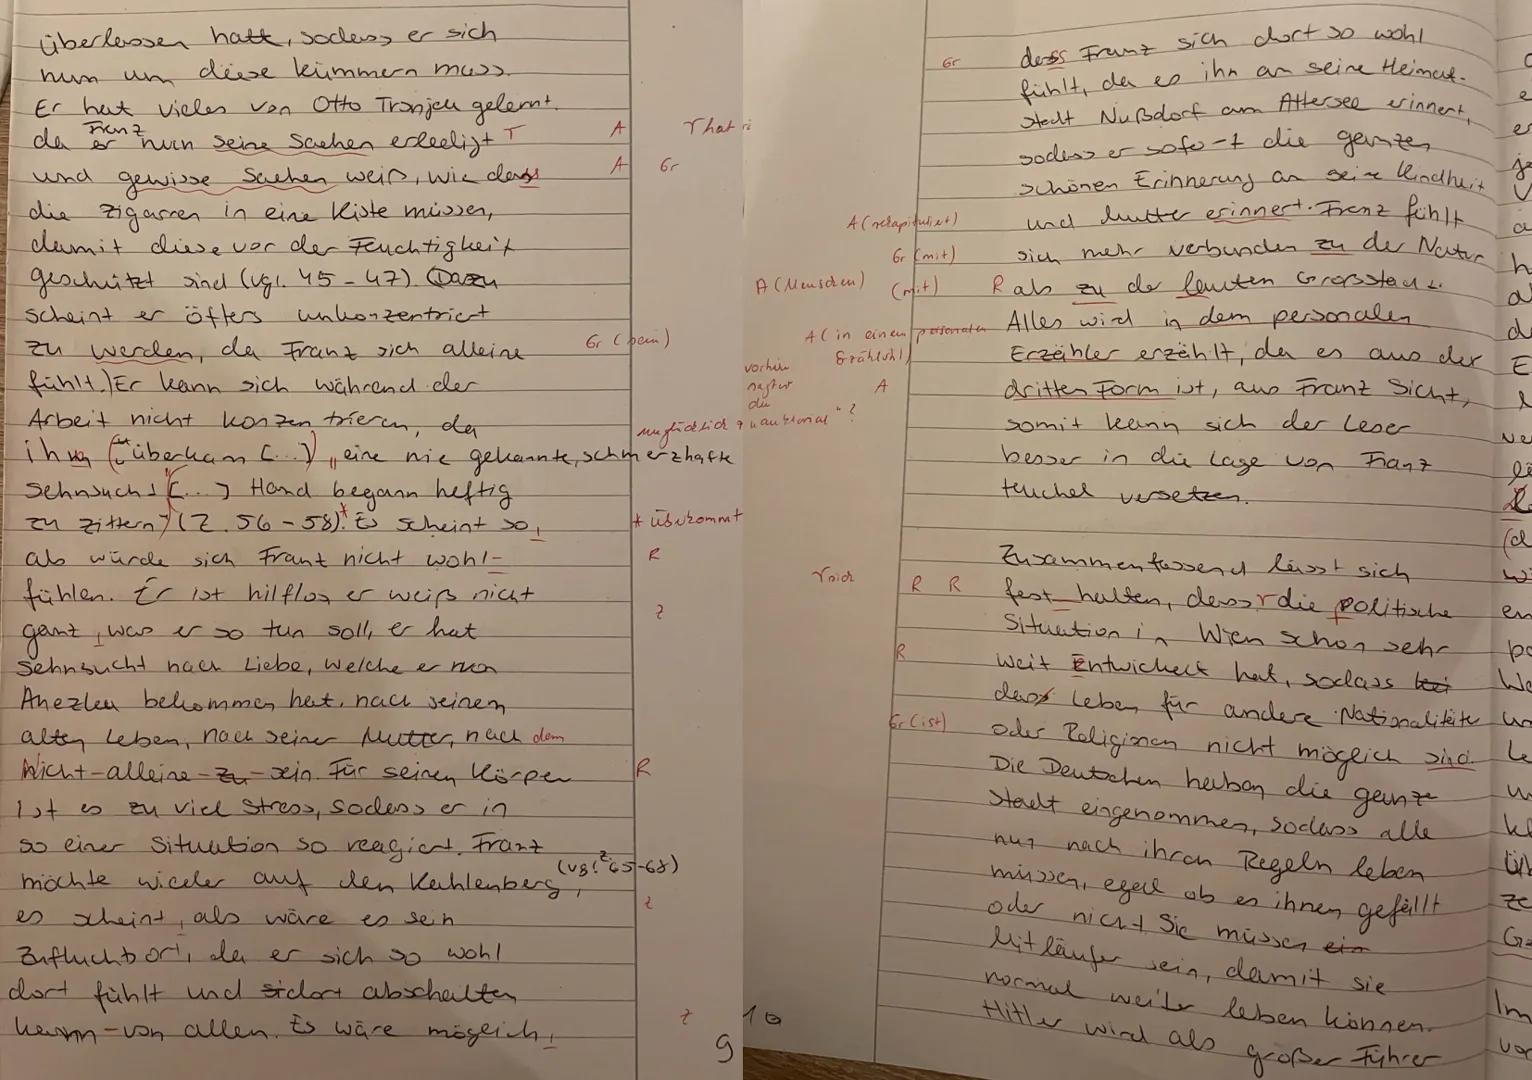 überlassen hatt, sodass er sich
nun um diese kümmern muss.
Er hat vieles von Otto Trsnjek gelernt.
da er Franz nun seine Sachen erledigt
A
That
und gewisse Sachen weiß, wie dass
A
Gr
die Zigarren in eine Kiste müssen,
damit diese vor der Feuchtigkeit
geschützt sind (vgl. 45-47). (Dazu
scheint er öfters unkonzentriert
zu werden, da Franz sich alleine
Gr (sein)
fühlt.) Er kann sich während der
Arbeit nicht konzentrieren, da
ihm "überkam [...] "eine nie gekannte, schmerzhafte
Sehnsucht [...] Hand begann heftig
zu zittern" (Z. 56-58)* Es scheint so,
* überkommt
als würde sich Franz nicht wohl-
R
fühlen. Er ist hilflos er weiß nicht
Z
ganz, was er so tun soll, er hat
Sehnsucht nach Liebe, welche er von
Anezka bekommen hat, nach seinem
alten Leben, nach seiner Mutter, nach dem
Nicht-alleine-zu-sein. Für seinen Körper
R
ist es zu viel Stress, sodass er in
so einer Situation so reagiert. Franz
(vgl. Z 65-68)
möchte wieder auf den Kahlenberg,
es scheint, als wäre es sein
Z
Zufluchtsort, da er sich so wohl
dort fühlt und dort abschalten
kann von allen. Es wäre möglich,
Z
9
Gr
dass Franz sich dort so wohl
fühlt, da es ihn an seine Heimat-
stadt Nußdorf am Attersee erinnert,
sodass er sofort die ganzen
schönen Erinnerung an seine Kindheit
A (rekapituliert)
und Mutter erinnert. Franz fühlt
Gr (mit)
sich mehr verbunden zu der Natur
A (Menschen) (mit) R
als zu der lauten Grossstadt.
A (in einem personalen Erzählstil)
Alles wird in dem personalen
Erzähler erzählt, da es aus der
vorhin sagtest du "auktorial"?
A
dritten Form ist, aus Franz Sicht,
somit kann sich der Leser
besser in die Lage von Franz
Huchel versetzen.
Zusammenfassend lässt sich
sich
R R
fest halten, dass die politische
Situation in Wien schon sehr
R
weit Entwickelt hat, sodass bei
dass Leben für andere Nationalitäte
Gr (ist)
oder Religionen nicht möglich sind.
Die Deutschen haben die ganze
Stadt eingenommen, sodass alle
nur nach ihren Regeln leben
müssen, egal ob es ihnen gefällt
oder nicht Sie müssen ein
Mitläufer sein, damit sie
normal weiter leben können.
10
Hitler wird als großer Führer